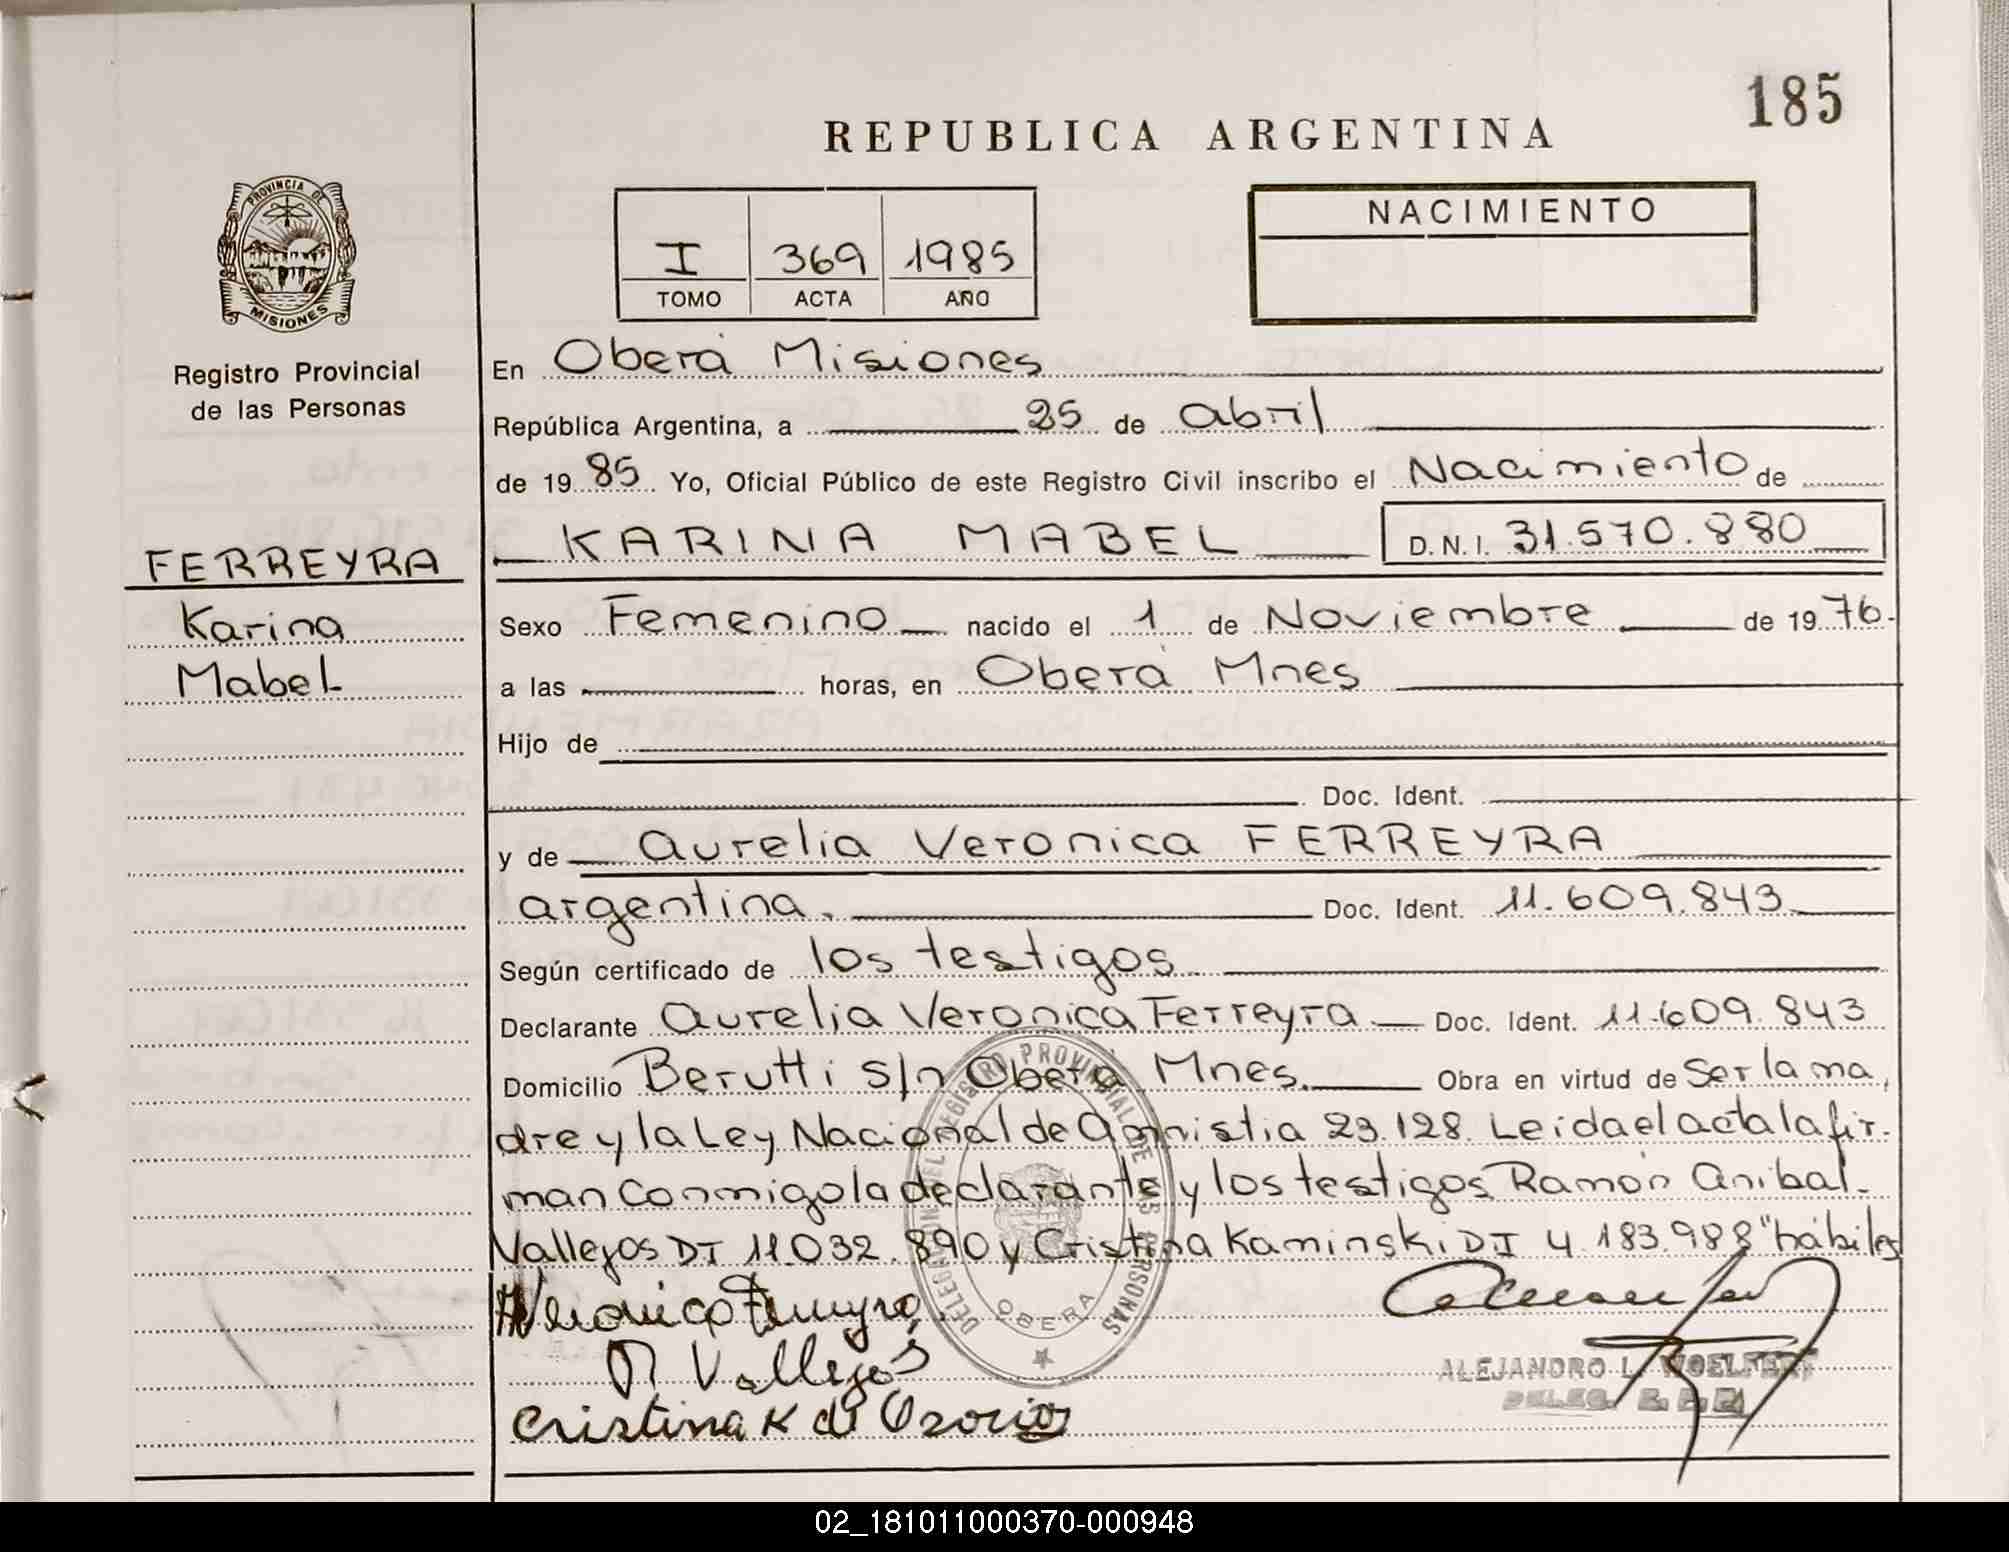 185
REPUBLICA ARGENTINA
PROVINCIA DE
MISIONES
Registro Provincial
de las Personas
FERREYRA
Karina
Mabel
I 369 1985
TOMO ACTA AÑO
NACIMIENTO
En Oberá Misiones
República Argentina, a 25 de abril
de 19 85 Yo, Oficial Público de este Registro Civil inscribo el Nacimiento de
KARINA MABEL D.N.I. 31.570.880
Sexo Femenino nacido el 1 de Noviembre de 19 76
a las horas, en Oberá Mnes
Hijo de
Doc. Ident.
y de Aurelia Veronica FERREYRA
argentina. Doc. Ident. 11.609.843
Según certificado de los testigos
Declarante Aurelia Veronica Ferreyra Doc. Ident. 11.609.843
Domicilio Berutti s/n Oberá Mnes. Obra en virtud de Ser la ma
dre y la Ley Nacional de Amnistia 23.128. Leida el acta la fir-
man conmigo la declarante y los testigos Ramón Anibal
Vallejos DI 11.032.890 y Cristina Kaminski DI 4.183.988 "hábiles
DELEGACION DEL REGISTRO PROVINCIAL DE LAS PERSONAS
OBERA
Veronica Ferreyra
R Vallejos
Cristina K de Ozorio
ALEJANDRO L. WOELFERT
DELEG. R. P. P.
02_181011000370-000948